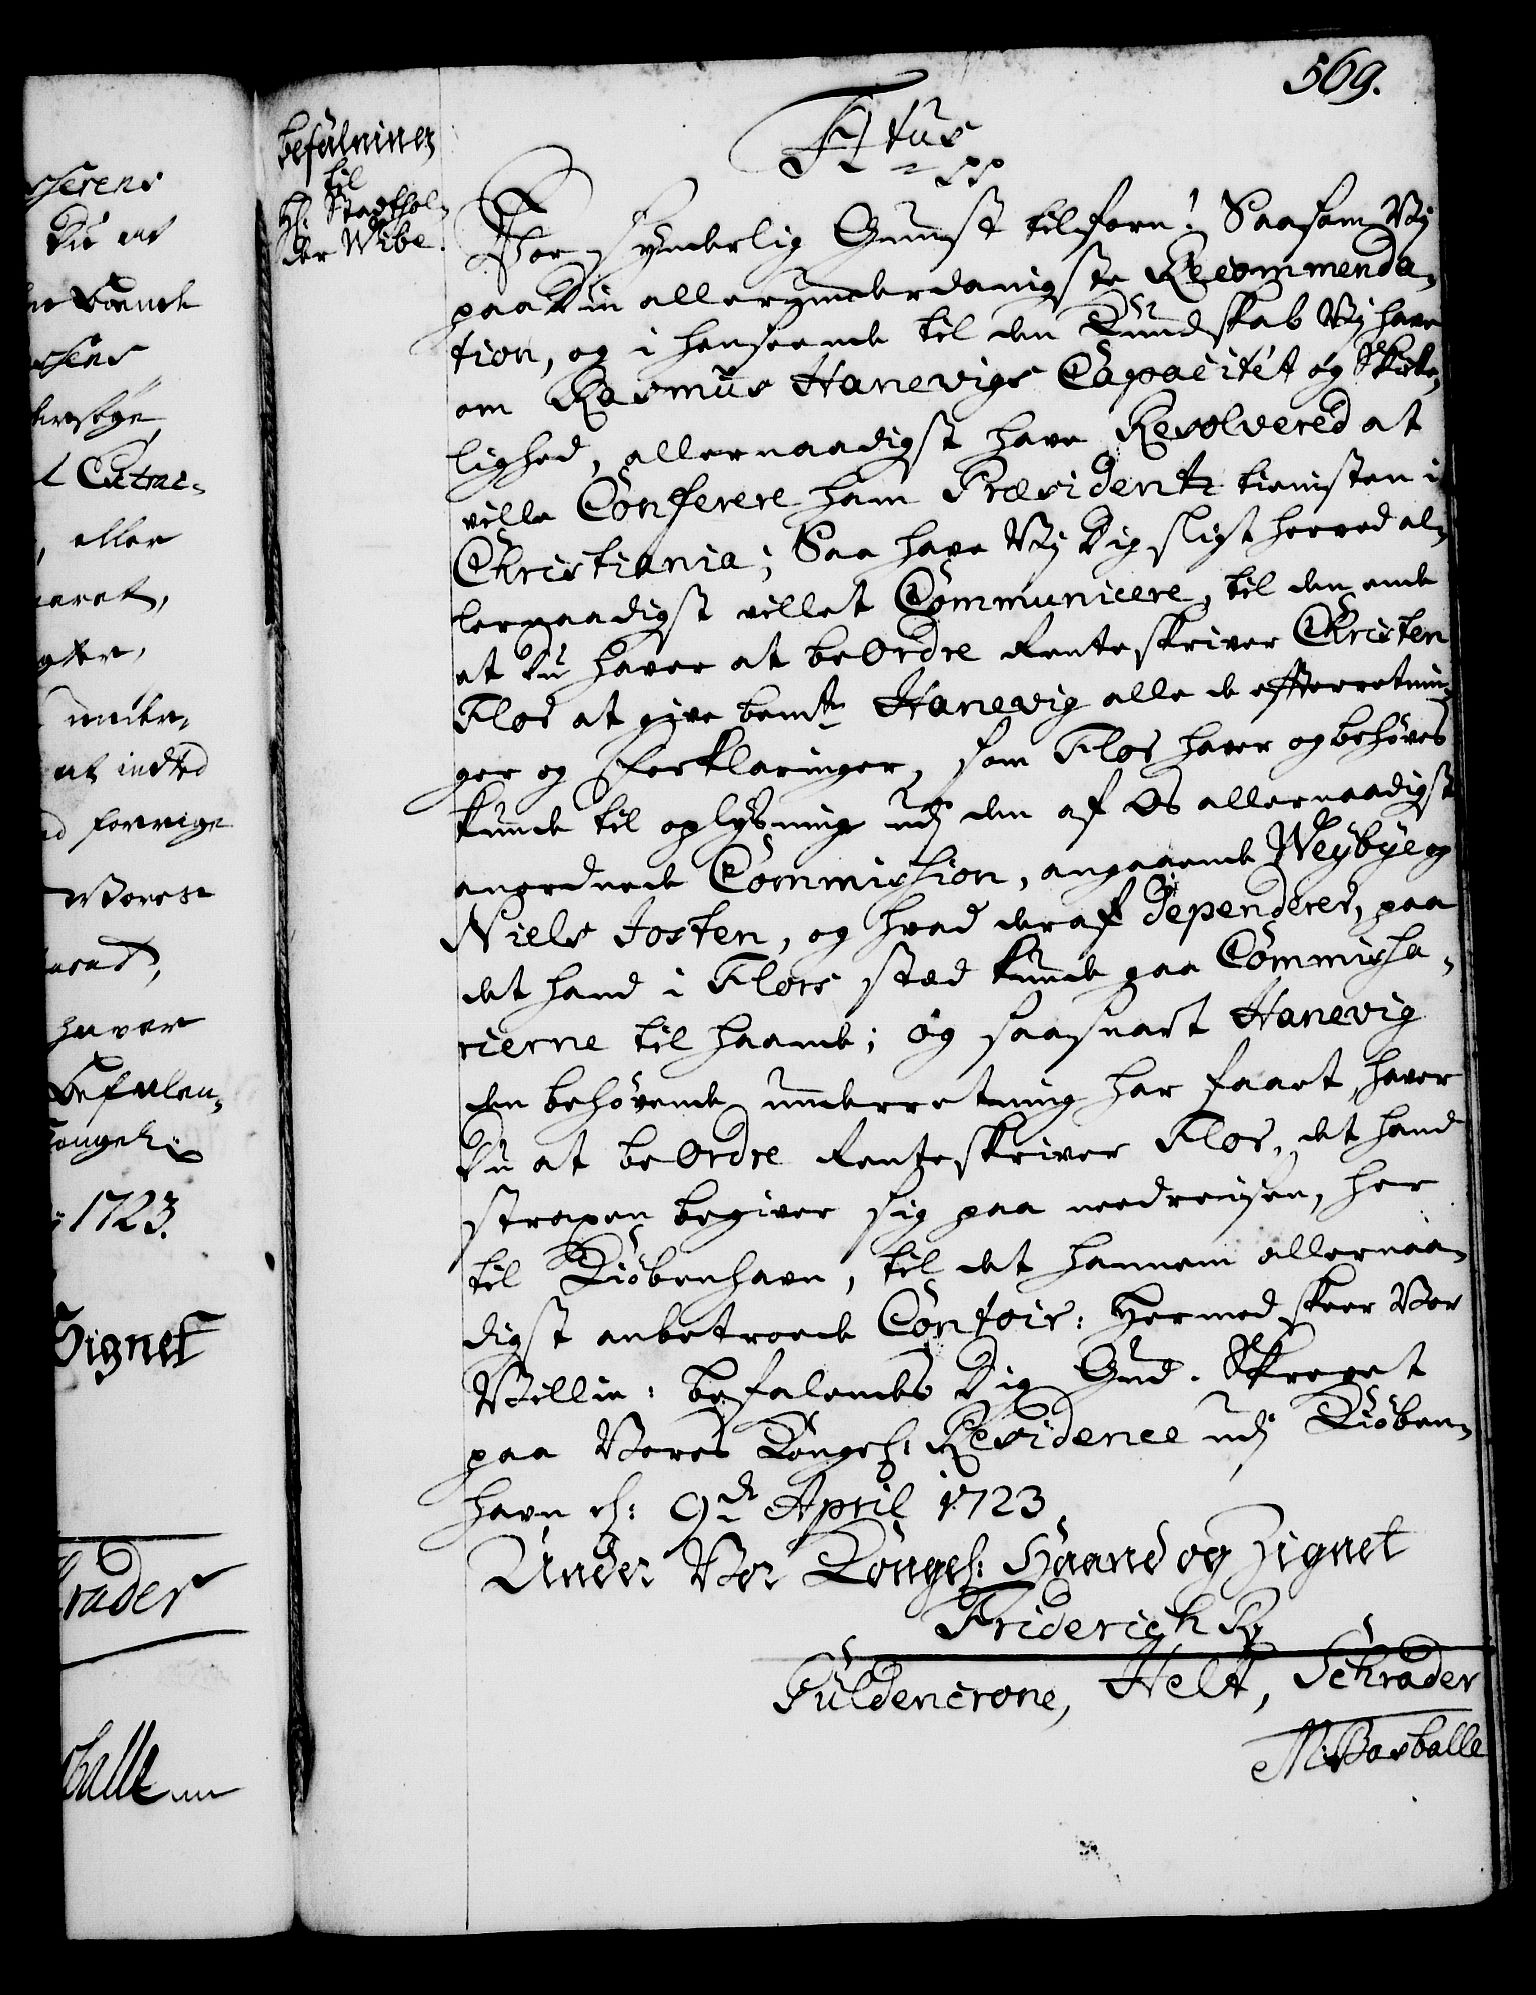 569.
befalning
til
Hr. Stadthol-
der Wibe.
Titus
pp
Vor synderlig Gunst tilforn! Saasom Vij
paa Din allerunderdanigste Recommenda-
tion, og i henseende til den Kundskab Vij have
om Rasmus Hanevigs Capacitét og Skike-
lighed, allernaadigst have Resolvered at
ville Conferere ham Præsidents tienisten i
Christiania; Saa have Vij Dig sligt herved al-
lernaadigst villet Communicere, til den ende
at Du haver at beOrdre Renteskriver Christen
Flor at give bemte Hanevig alle de efterretnin-
ger og forklaringer, som Flor haver og behöves
kunde til oplysning udj den af Os allernaadigst
anordnede Commission, angaaende Weybye og
Niels Josten, og hvad deraf dependerer, paa
det hand i Flors sted kunde gaa Commissa-
rierne til haande; og saasnart Hanevig
den behövende underretning har faaet, haver
Du at beOrdre Renteskriver Flor, det hand
straxen begiver sig paa needreisen, her
til Kiöbenhavn, til det hannem allernaa-
digst anbetroede Contoir: Hermed skeer Vor
Villie: befalendes Dig Gud. Skrevet
paa Vores Kongel: Residence udj Kiöben-
havn d: 9de April 1723
Under Vor Kongel: Haand og Signet
Friderich R
Güldencrone, Helt, Schrader
M: Basballe
sserens
Du at
eller
haver
1723.
Signet
rader
balle